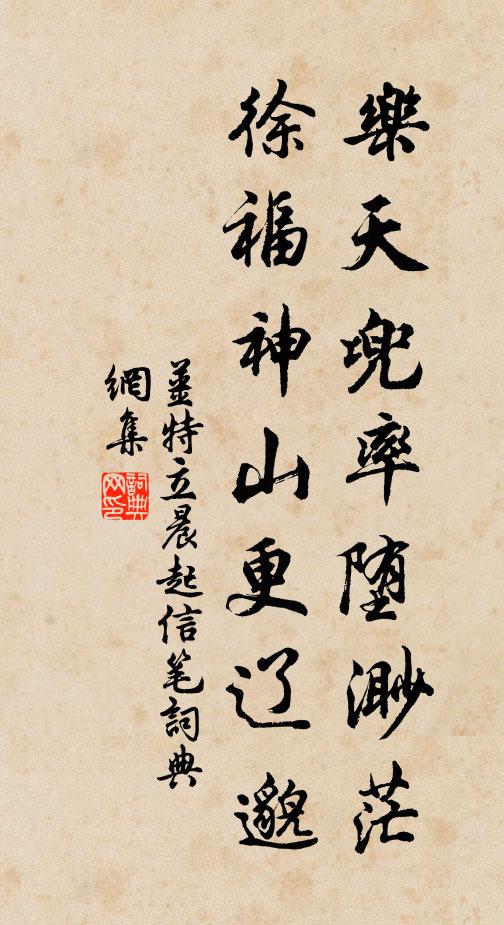 樂天兜率堕渺茫
徐福神山更辽邈
姜特立晨起信笔詞典
網集
詞典
网印